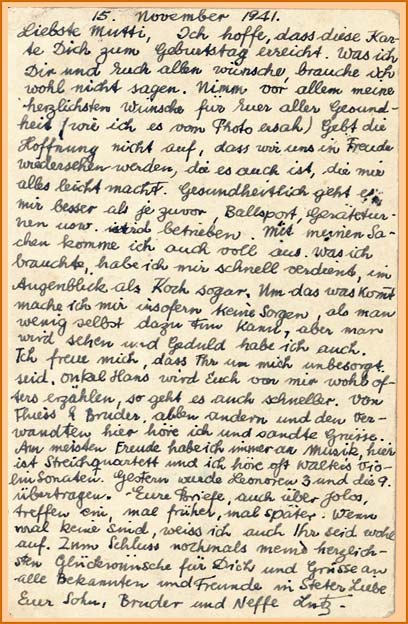 15. November 1941.
Liebste Mutti, Ich hoffe, dass diese Kar-
te Dich zum Geburtstag erreicht. Was ich
Dir und Euch allen wünsche, brauche ich
wohl nicht sagen. Nimm vor allem meine
herzlichsten Wünsche für Euer aller Gesund-
heit (wie ich es vom Photo ersah) Gebt die
Hoffnung nicht auf, dass wir uns in Freude
wiedersehen werden, die es auch ist, die mir
alles leicht macht. Gesundheitlich geht es
mir besser als je zuvor, Ballsport, Gerätetur-
nen usw. wird betrieben. Mit meinen Sa-
chen komme ich auch voll aus. Was ich
brauchte, habe ich mir schnell verdient, im
Augenblick als Koch sogar. Um das was kommt
mache ich mir insofern keine Sorgen, als man
wenig selbst dazu tun kann, aber man
wird sehen und Geduld habe ich auch.
Ich freue mich, dass Ihr um mich unbesorgt
seid. Onkel Hans wird Euch von mir wohl öf-
ters erzählen, so geht es auch schneller. Von
& Bruder, allen andern und den Ver-
wandten hier höre ich und sandte Grüsse.
Am meisten Freude habe ich immer an Musik, hier
ist Streichquartett und ich höre oft Walters Vio-
lin Sonaten. Gestern wurde Leonoren 3 und die 9.
übertragen. - Eure Briefe, auch über
treffen ein, mal früher, mal später. Wenn
mal keine sind, weiss ich auch Ihr seid wohl
auf. Zum Schluss nochmals meine herzlich-
sten Glückwünsche für Dich und Grüsse an
alle Bekannten und Freunde in steter Liebe
Euer Sohn, Bruder und Neffe Lutz.-